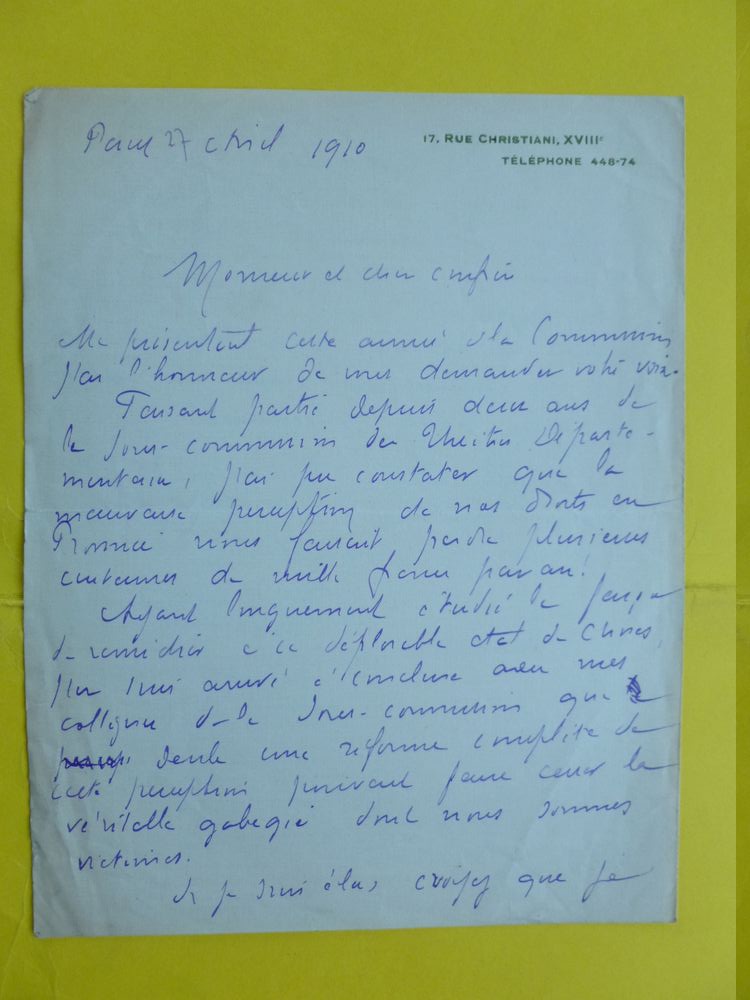 Paris 27 Avril 1910
17, RUE CHRISTIANI, XVIIIe
TÉLÉPHONE 448-74
Monsieur et cher confrère
Me présentant cette année à la Commission
j'ai l'honneur de vous demander votre voix.
Faisant partie depuis deux ans de
la sous-commission des Théâtres Départe-
mentaux, j'ai pu constater que la
mauvaise perception de nos droits en
Province nous faisait perdre plusieurs
centaines de mille francs par an!
Ayant longuement étudié la façon
de remédier à ce déplorable état de choses,
j'en suis arrivé à conclure avec mes
collègues de la Sous-commission que
seule une réforme complète de
cette perception pouvait faire cesser la
véritable gabegie dont nous sommes
victimes.
Si je suis élu, croyez que je